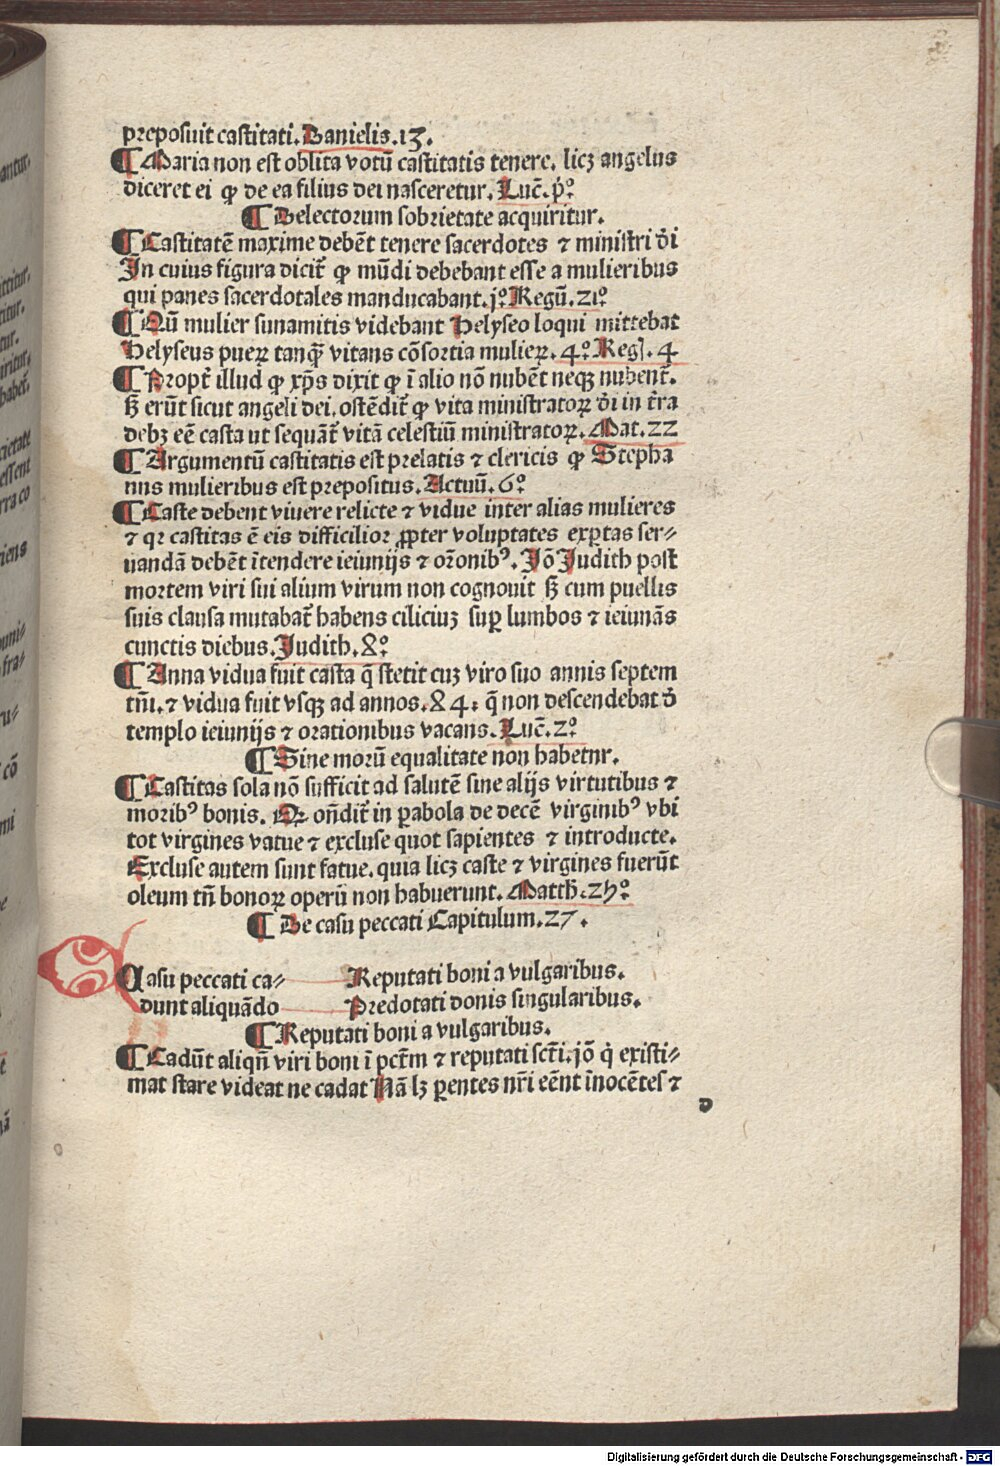 preposuit castitati. Danielis.13.
¶ Maria non est oblita votū castitatis tenere. licꝫ angelus
diceret ei ꝙ de ea filius dei nasceretur. Luc̄. p̄º
¶ Delectorum sobrietate acquiritur.
¶ Castitatē maxime debēt tenere sacerdotes ⁊ ministri d̄i
In cuius figura dicit̄ ꝙ mūdi debebant esse a mulieribus
qui panes sacerdotales manducabant. jº Regū.21º
¶ Dū mulier sunamitis videbant Helyseo loqui mittebat
Helyseus pueꝝ tanq̄ꝫ vitans cōsortia mulieꝝ. 4º Regl.4
¶ Propt̄ illud ꝙ xp̄s dixit ꝙ ī alio nō nubēt neqꝫ nubent̄.
sꝫ erūt sicut angeli dei. ostēdit̄ ꝙ vita ministratoꝝ d̄i in t̄ra
debꝫ eē casta ut sequāt̄ vitā celestiū ministratoꝝ. Mat.22
¶ Argumentū castitatis est prelatis ⁊ clericis ꝙ Stepha
nus mulieribus est prepositus. Actuū.6º
¶ Caste debent viuere relicte ⁊ vidue inter alias mulieres
⁊ qꝛ castitas ē eis difficilior ꝓpter voluptates exꝑtas ser⸗
uandā debēt ītendere ieiunijs ⁊ or̄onibꝰ. Jō Judith post
mortem viri sui alium virum non cognouit sꝫ cum puellis
suis clausa mutabat̄ habens ciliciuꝫ suꝑ lumbos ⁊ ieiunās
cunctis diebus. Judith.8º
¶ Anna vidua fuit casta q̄ stetit cuꝫ viro suo annis septem
tm̄. ⁊ vidua fuit vsqꝫ ad annos.84. q̄ non descendebat d̄
templo ieiunijs ⁊ orationibus vacans. Luc̄.2º
¶ Sine morū equalitate non habetur.
¶ Castitas sola nō sufficit ad salutē sine alijs virtutibus ⁊
moribꝰ bonis. Qꝛ on̄dit̄ in ꝑabola de decē virginibꝰ vbi
tot virgines vatue ⁊ excluse quot sapientes ⁊ introducte.
Excluse autem sunt fatue. quia licꝫ caste ⁊ virgines fuerūt
oleum tn̄ bonoꝝ operū non habuerunt. Matth̄.25º
¶ De casu peccati Capitulum.27.
Qasu peccati ca⸗ Reputati boni a vulgaribus.
dunt aliquādo Predotati donis singularibus.
¶ Reputati boni a vulgaribus.
¶ Cadūt aliqn̄ viri boni ī pct̄m ⁊ reputati sct̄i. jō q̇ existi⸗
mat stare videat ne cadat Nā lꝫ ꝑentes nr̄i eēnt īnocētes ⁊
d
Digitalisierung gefördert durch die Deutsche Forschungsgemeinschaft - DFG